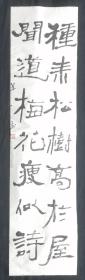 種素松樹高於屋
聞道梅花瘦似詩